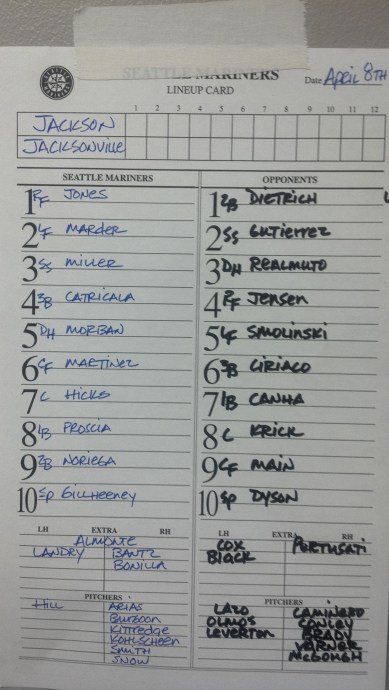 SEATTLE MARINERS
LINEUP CARD
Date April 8TH
1 2 3 4 5 6 7 8 9 10 11 12
JACKSON
JACKSONVILLE
SEATTLE MARINERS
1 RF JONES
2 LF MARDER
3 SS MILLER
4 3B CATRICALA
5 DH MORBAN
6 CF MARTINEZ
7 C HICKS
8 1B PROSCIA
9 2B NORIEGA
10 SP GILLHEENEY
LH EXTRA RH
ALMONTE
LANDRY BANTZ
BONILLA
PITCHERS
HILL ARIAS
BURGOON
KITTREDGE
KOHLSCHEEN
SMITH
SNOW
OPPONENTS
1 2B DIETRICH
2 SS GUTIERREZ
3 DH REALMUTO
4 RF JENSEN
5 LF SMOLINSKI
6 3B CIRIACO
7 1B CANHA
8 C KRICK
9 CF MAIN
10 SP DYSON
LH EXTRA RH
COX PERTUSATI
BLACK
PITCHERS
LAZO CAMINERO
OLMOS CONLEY
LEVERTON BRADY
VARNER
MCGOUGH